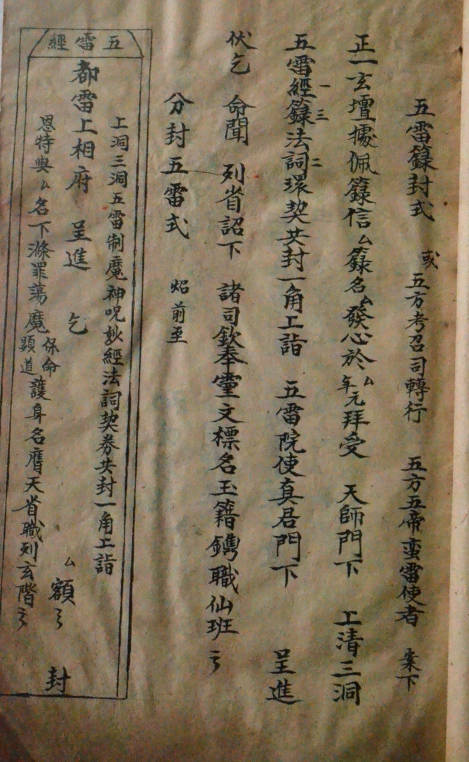 五雷籙封式 或五方考召司轉行 五方五帝蛮雷使者 案下
正一玄壇據佩籙信厶籙名厶發心於厶年元拜受 天師門下 上清三洞
五雷經籙法詞環契共封一角上詣 五雷院使真君門下 呈進
一三二
伏乞 命聞 列省詔下 諸司欽奉靈文標名玉籍鐫職仙班
分封五雷式 炤前至
五雷經
上洞三洞五雷制魔神呪妙經法詞契券共封一角上詣
都雷上相府 呈進 乞 厶額 封
恩特與厶名下滌罪蕩魔保命顕道護身名膺天省職列玄階